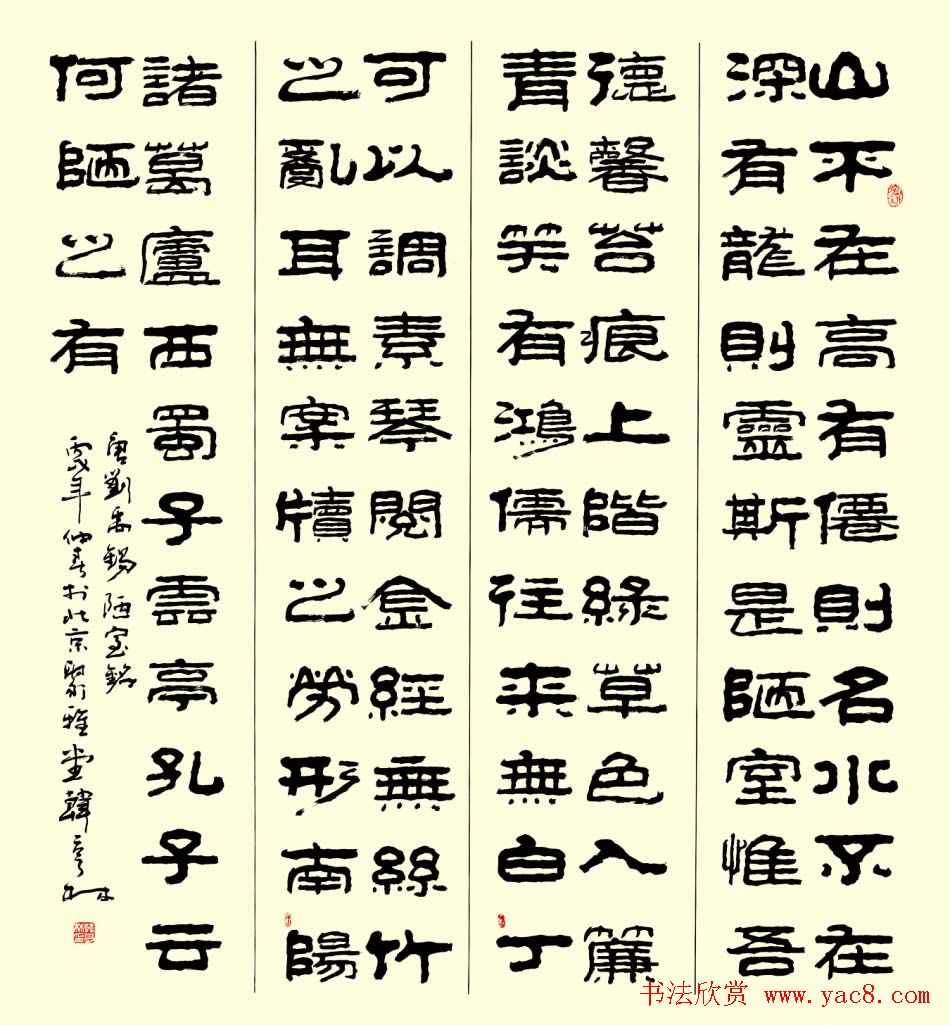 山不在高有僊則名水不在
深有龍則靈斯是陋室惟吾
德馨苔痕上階緑草色入簾
青談笑有鴻儒往来無白丁
可以調素琴閱金經無絲竹
之亂耳無案牘之勞形南陽
諸葛廬西蜀子雲亭孔子云
何陋之有
唐劉禹錫陋室銘
年仲春於北京聚雅堂韓
书法欣赏 www.yac8.com